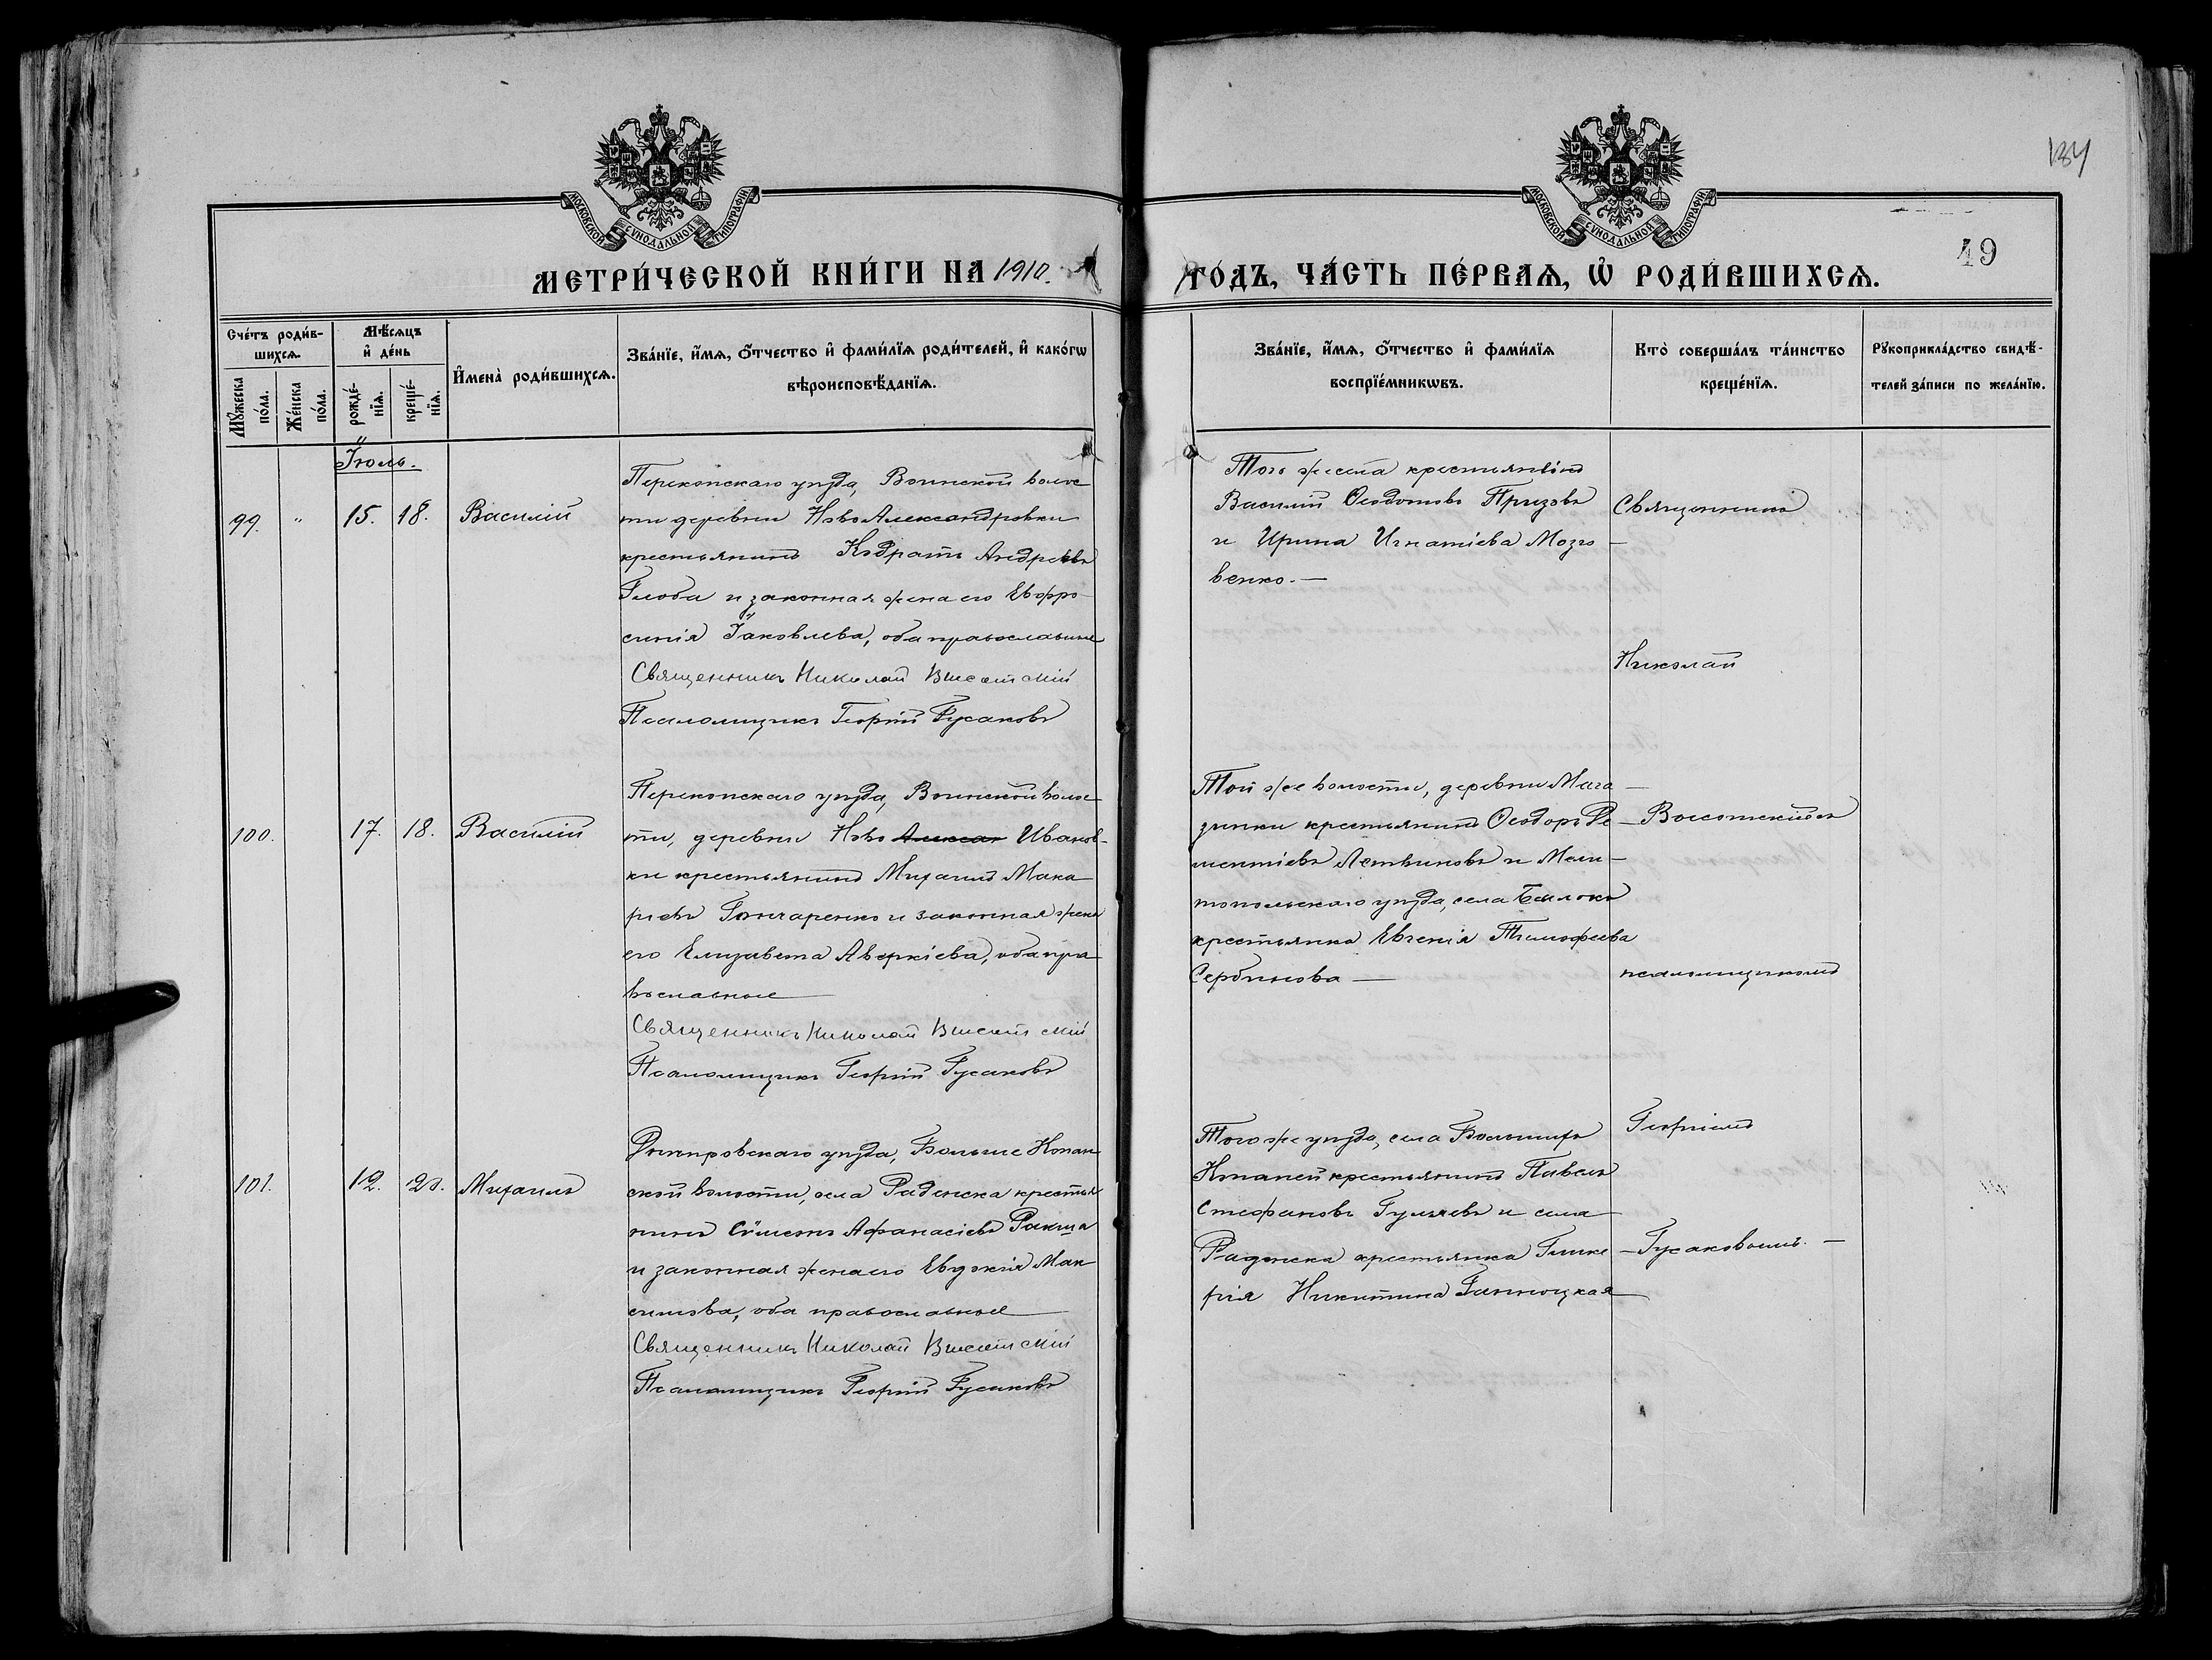 134
49
МОСКОВСКОЙ СѴНОДАЛЬНОЙ ТИПОГРАФІИ
МОСКОВСКОЙ СѴНОДАЛЬНОЙ ТИПОГРАФІИ
МЕТРИ́ЧЕСКОЙ КНИ́ГИ НА 1910.
ГО́ДЪ, ЧА́СТЬ ПЕ́РВАѦ, Ѡ҆ РОДИ́ВШИХСѦ.
Сче́тъ роди́в-
шихсѧ.
Мꙋ́жеска по́ла.
Же́нска по́ла.
Мѣ́сѧцъ
и҆ де́нь
рожде́-
нїѧ.
креще́-
нїѧ.
И҆мена̀ роди́вшихсѧ.
Зва́нїе, и҆́мѧ, ѻ҆́тчество и҆ фами́лїѧ роди́телей, и҆ како́гѡ
вѣроисповѣ́данїѧ.
Зва́нїе, и҆́мѧ, ѻ҆́тчество и҆ фами́лїѧ
воспрїе́мникѡвъ.
Кто̀ соверша́лъ та́инство
креще́нїѧ.
Рꙋкоприкла́дство свидѣ́-
телей за́писи по жела́нїю.
Іюль.
99. " 15. 18. Василій
Перекопскаго уѣзда, Воинской волос
ти деревни Ново Александровки
крестьянинъ Кодратъ Андреевъ
Глоба и законная жена его Евфро-
синія Іаковлева, оба православные
Священникъ Николай Высотскій
Псаломщикъ Георгій Гусаковъ
Того же села крестьянинъ
Василій Ѳеодотовъ Призовъ
и Ирина Игнатіева Мозго
венко.—
Священникъ
Николай
100. 17. 18. Василій
Перекопскаго уѣзда, Воинской волос
ти, деревни Ново Алексан Иванов-
ки крестьянинъ Михаилъ Мака
ріевъ Гончаренко и законная жена
его Елизавета Аверкіева, оба пра
вославные
Священникъ Николай Высотскій
Псаломщикъ Георгій Гусаковъ
Той же волости, деревни Мага
зинки крестьянинъ Ѳеодоръ Ле
ментіевъ Литвиновъ и Мели-
топольскаго уѣзда, села
крестьянка Евгенія Тимофеева
Сербинова —
Высотскій съ
псаломщикомъ
Георгіемъ
Гусаковымъ. —
101. 12. 20. Михаилъ
Днѣпровскаго уѣзда, Больше Копан
ской волости, села Раденска крестья
нинъ Сѵмеонъ Афанасіевъ Ракша
и законная жена его Евдокія Мак
симова, оба православные
Священникъ Николай Высотскій
Псаломщикъ Георгій Гусаковъ
Того же уѣзда, села Большихъ
Копаней крестьянинъ Павелъ
Стефановъ Гуляевъ и села
Раденска крестьянка Глике
рія Никитина